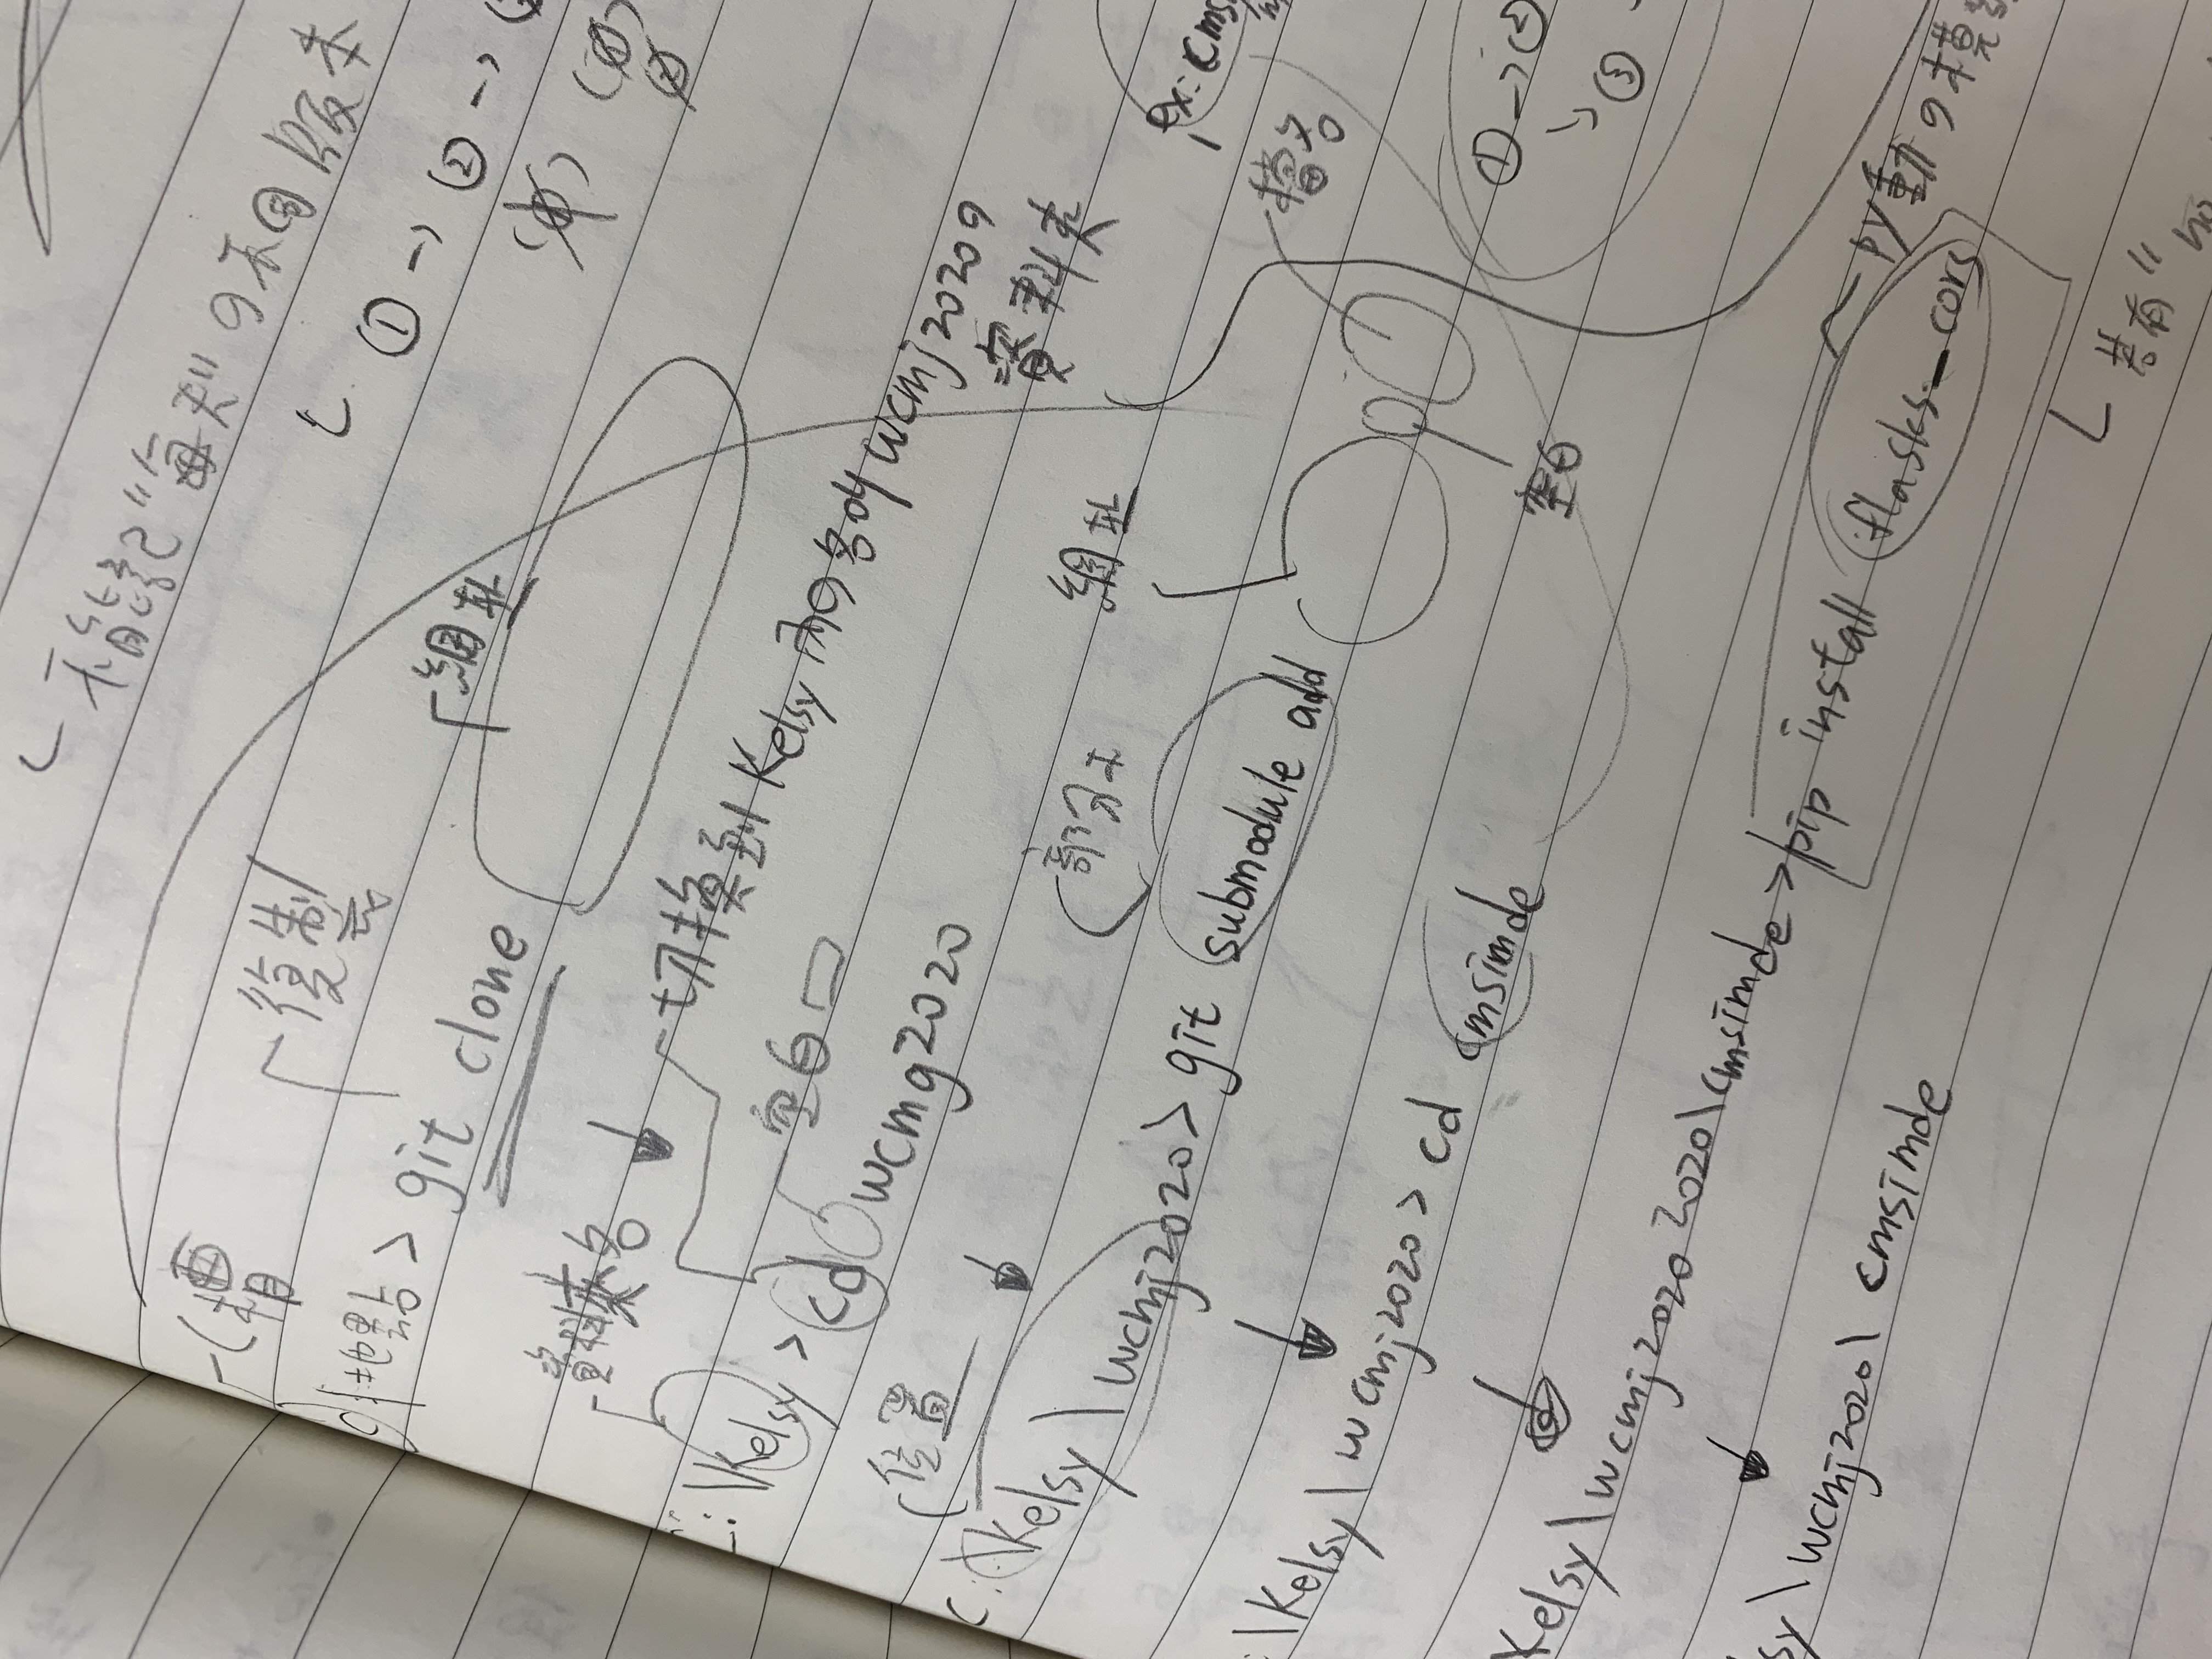 不能記"每次"の不同版本
① → ②
複製
> git clone
網址
資料夾名
切換到 Kelsy 內の名叫 wcmj2020の
資料夾
:\Kelsy > cd wcmg2020
空白
位置
C:\Kelsy\wcmj2020> git submodule add
部分
網址
ex: cms
檔名
空白
\Kelsy\wcmj2020> cd cmsimde
① → ②
→ ③
Kelsy\wcmj2020 2020\cmsimde >pip install flasks_cors
py動の模
sy\wcmj2020\ cmsimde
若有" no